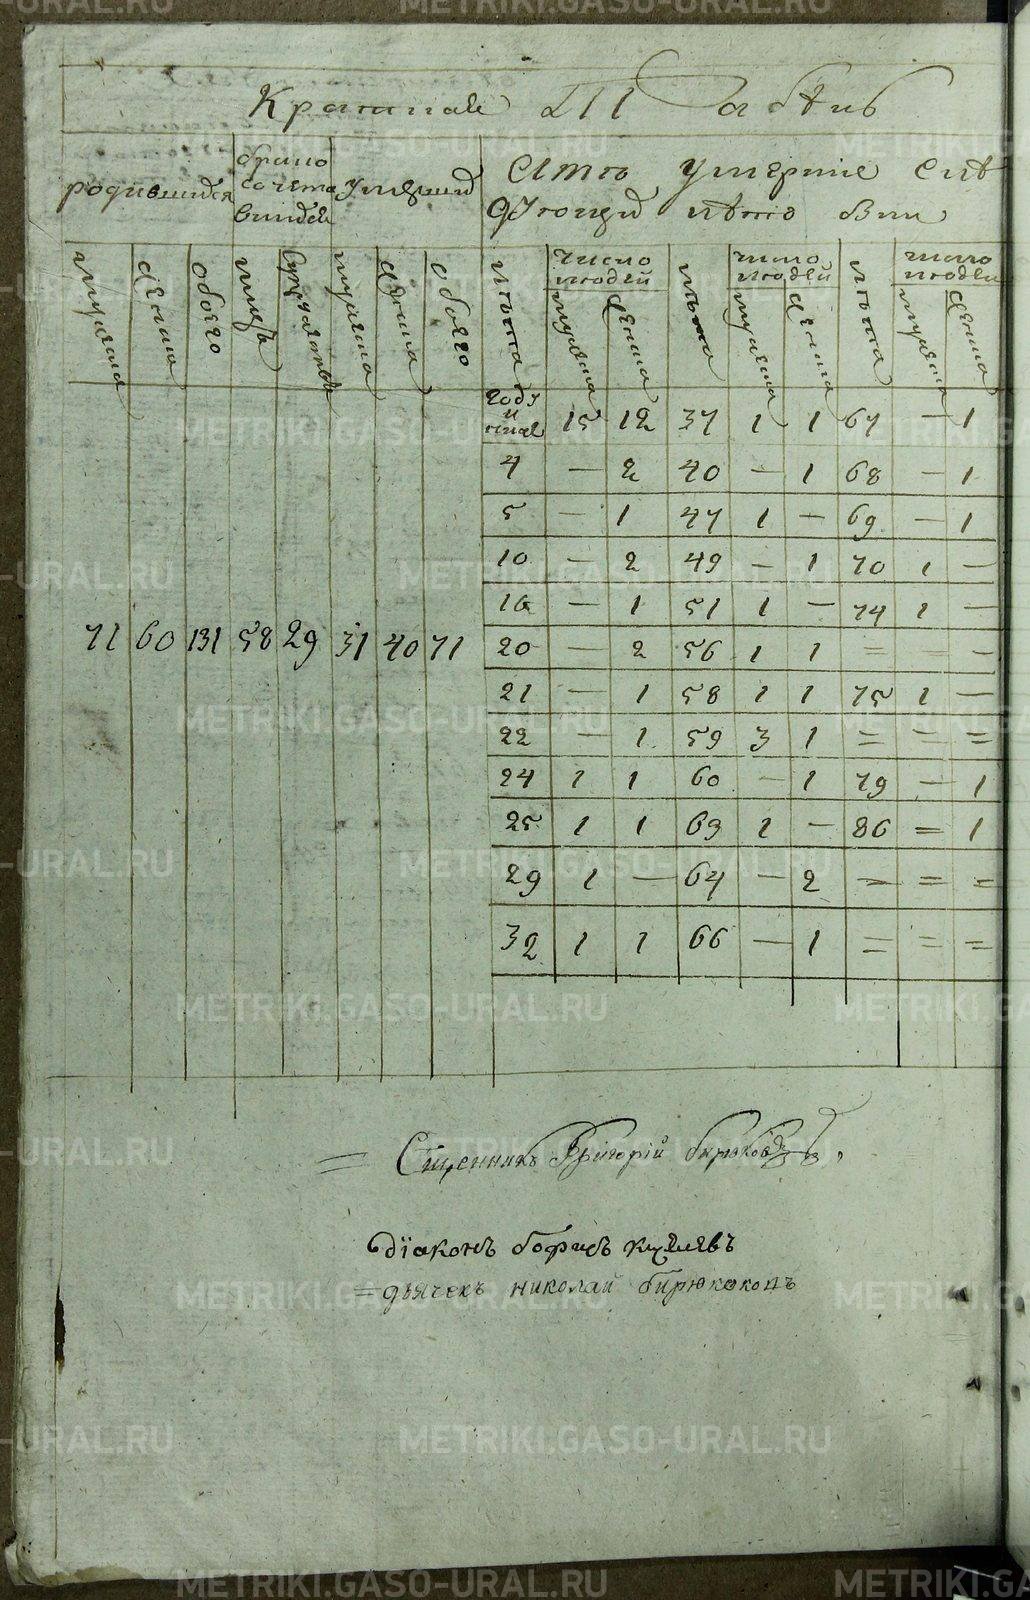 Краткая Табѣль
родившихся
брако
сочета
вшихся
умершихъ
Чило
людей
мужеска
женска
обоего
лицъ
супружествъ
мужеска
женска
обоего
лѣта
число
людей
мужеска
женска
лѣта
число
людей
мужеска
женска
лѣта
число
людей
мужеска
женска
году
и
15 12 37 1 1 67 — 1
4 — 2 40 — 1 68 — 1
5 — 1 47 1 — 69 — 1
10 — 2 49 — 1 70 1 —
16 — 1 51 1 — 74 1 —
71 60 131 58 29 31 40 71
20 — 2 56 1 1 = = –
21 — 1 58 1 1 75 1 —
22 — 1 59 3 1 = = =
24 1 1 60 — 1 79 — 1
25 1 1 63 1 — 86 = 1
29 1 — 64 — 2 = = =
32 1 1 66 — 1 = = =
= Сщенникъ Григорій Бирюковъ
діаконъ борисъ
= дьячекъ николай бирюковъ
METRIKI.GASO-URAL.RU